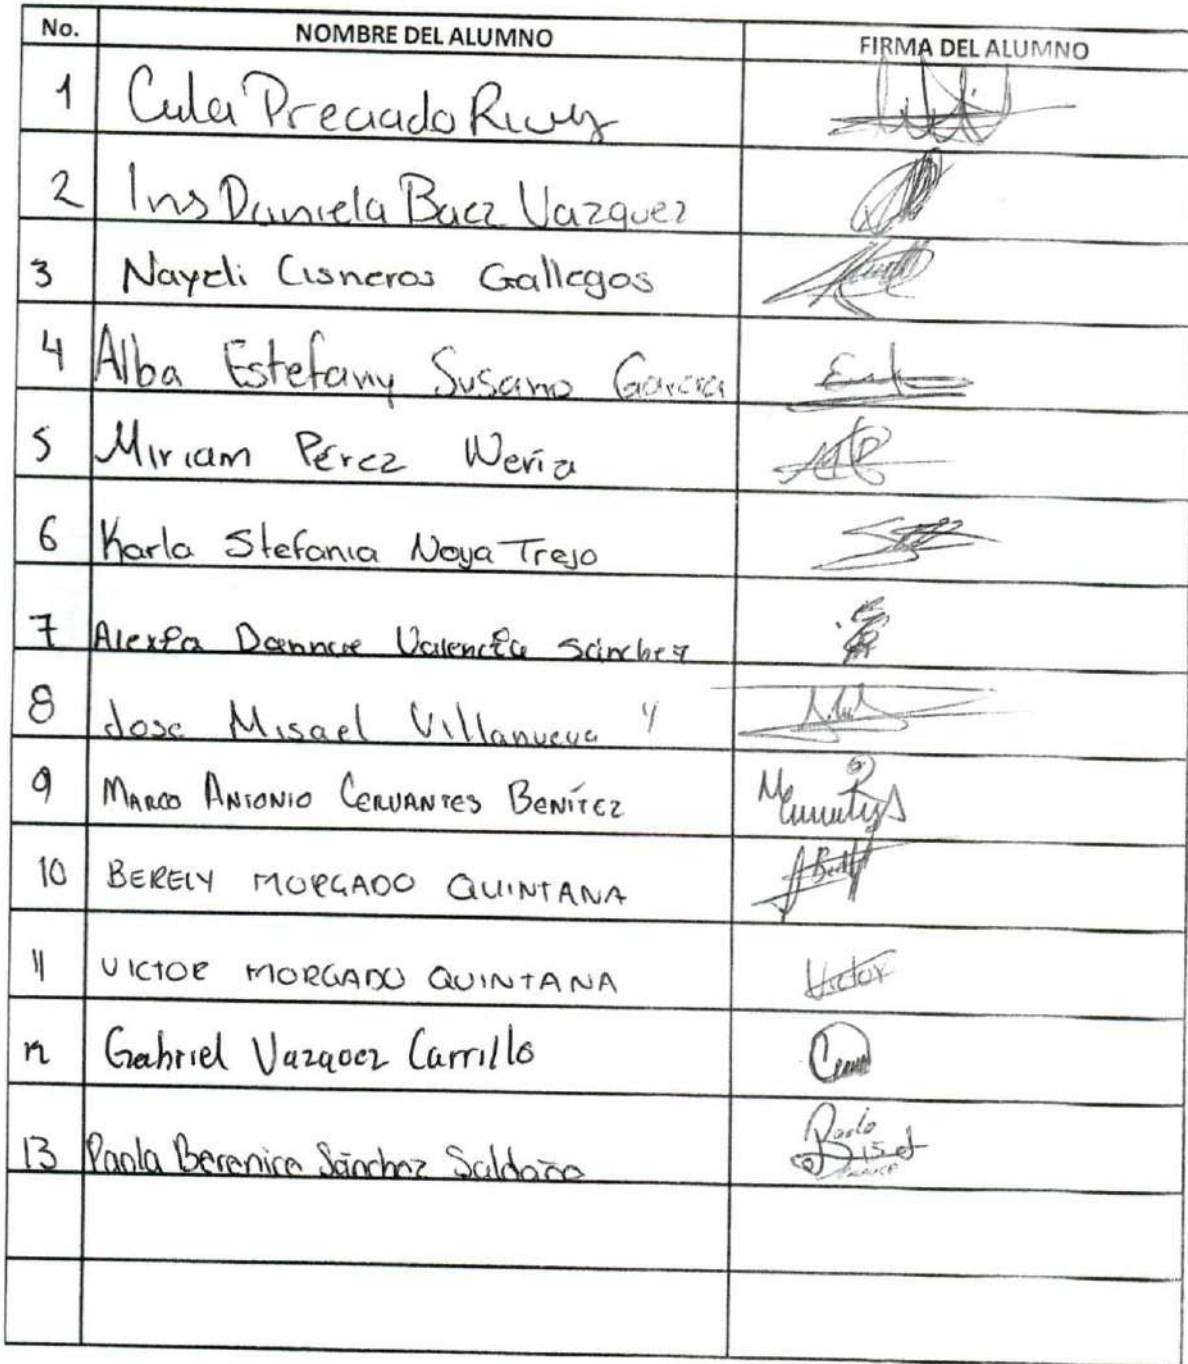 No. NOMBRE DEL ALUMNO FIRMA DEL ALUMNO
1 Preciado
2 Daniela Baez Vazquez
3 Nayeli Cisneros Gallegos
4 Alba Estefany Susano Garcia
5 Miriam Pérez
6 Karla Stefania Noya Trejo
7 Alexia Valencia Sánchez
8 Jose Misael Villanueva
9 MARCO ANTONIO CERVANTES BENÍTEZ
10 BERELY MORGADO QUINTANA
11 VICTOR MORGADO QUINTANA Victor
12 Gabriel Vazquez Carrillo
13 Paola Berenice Sánchez Saldaña